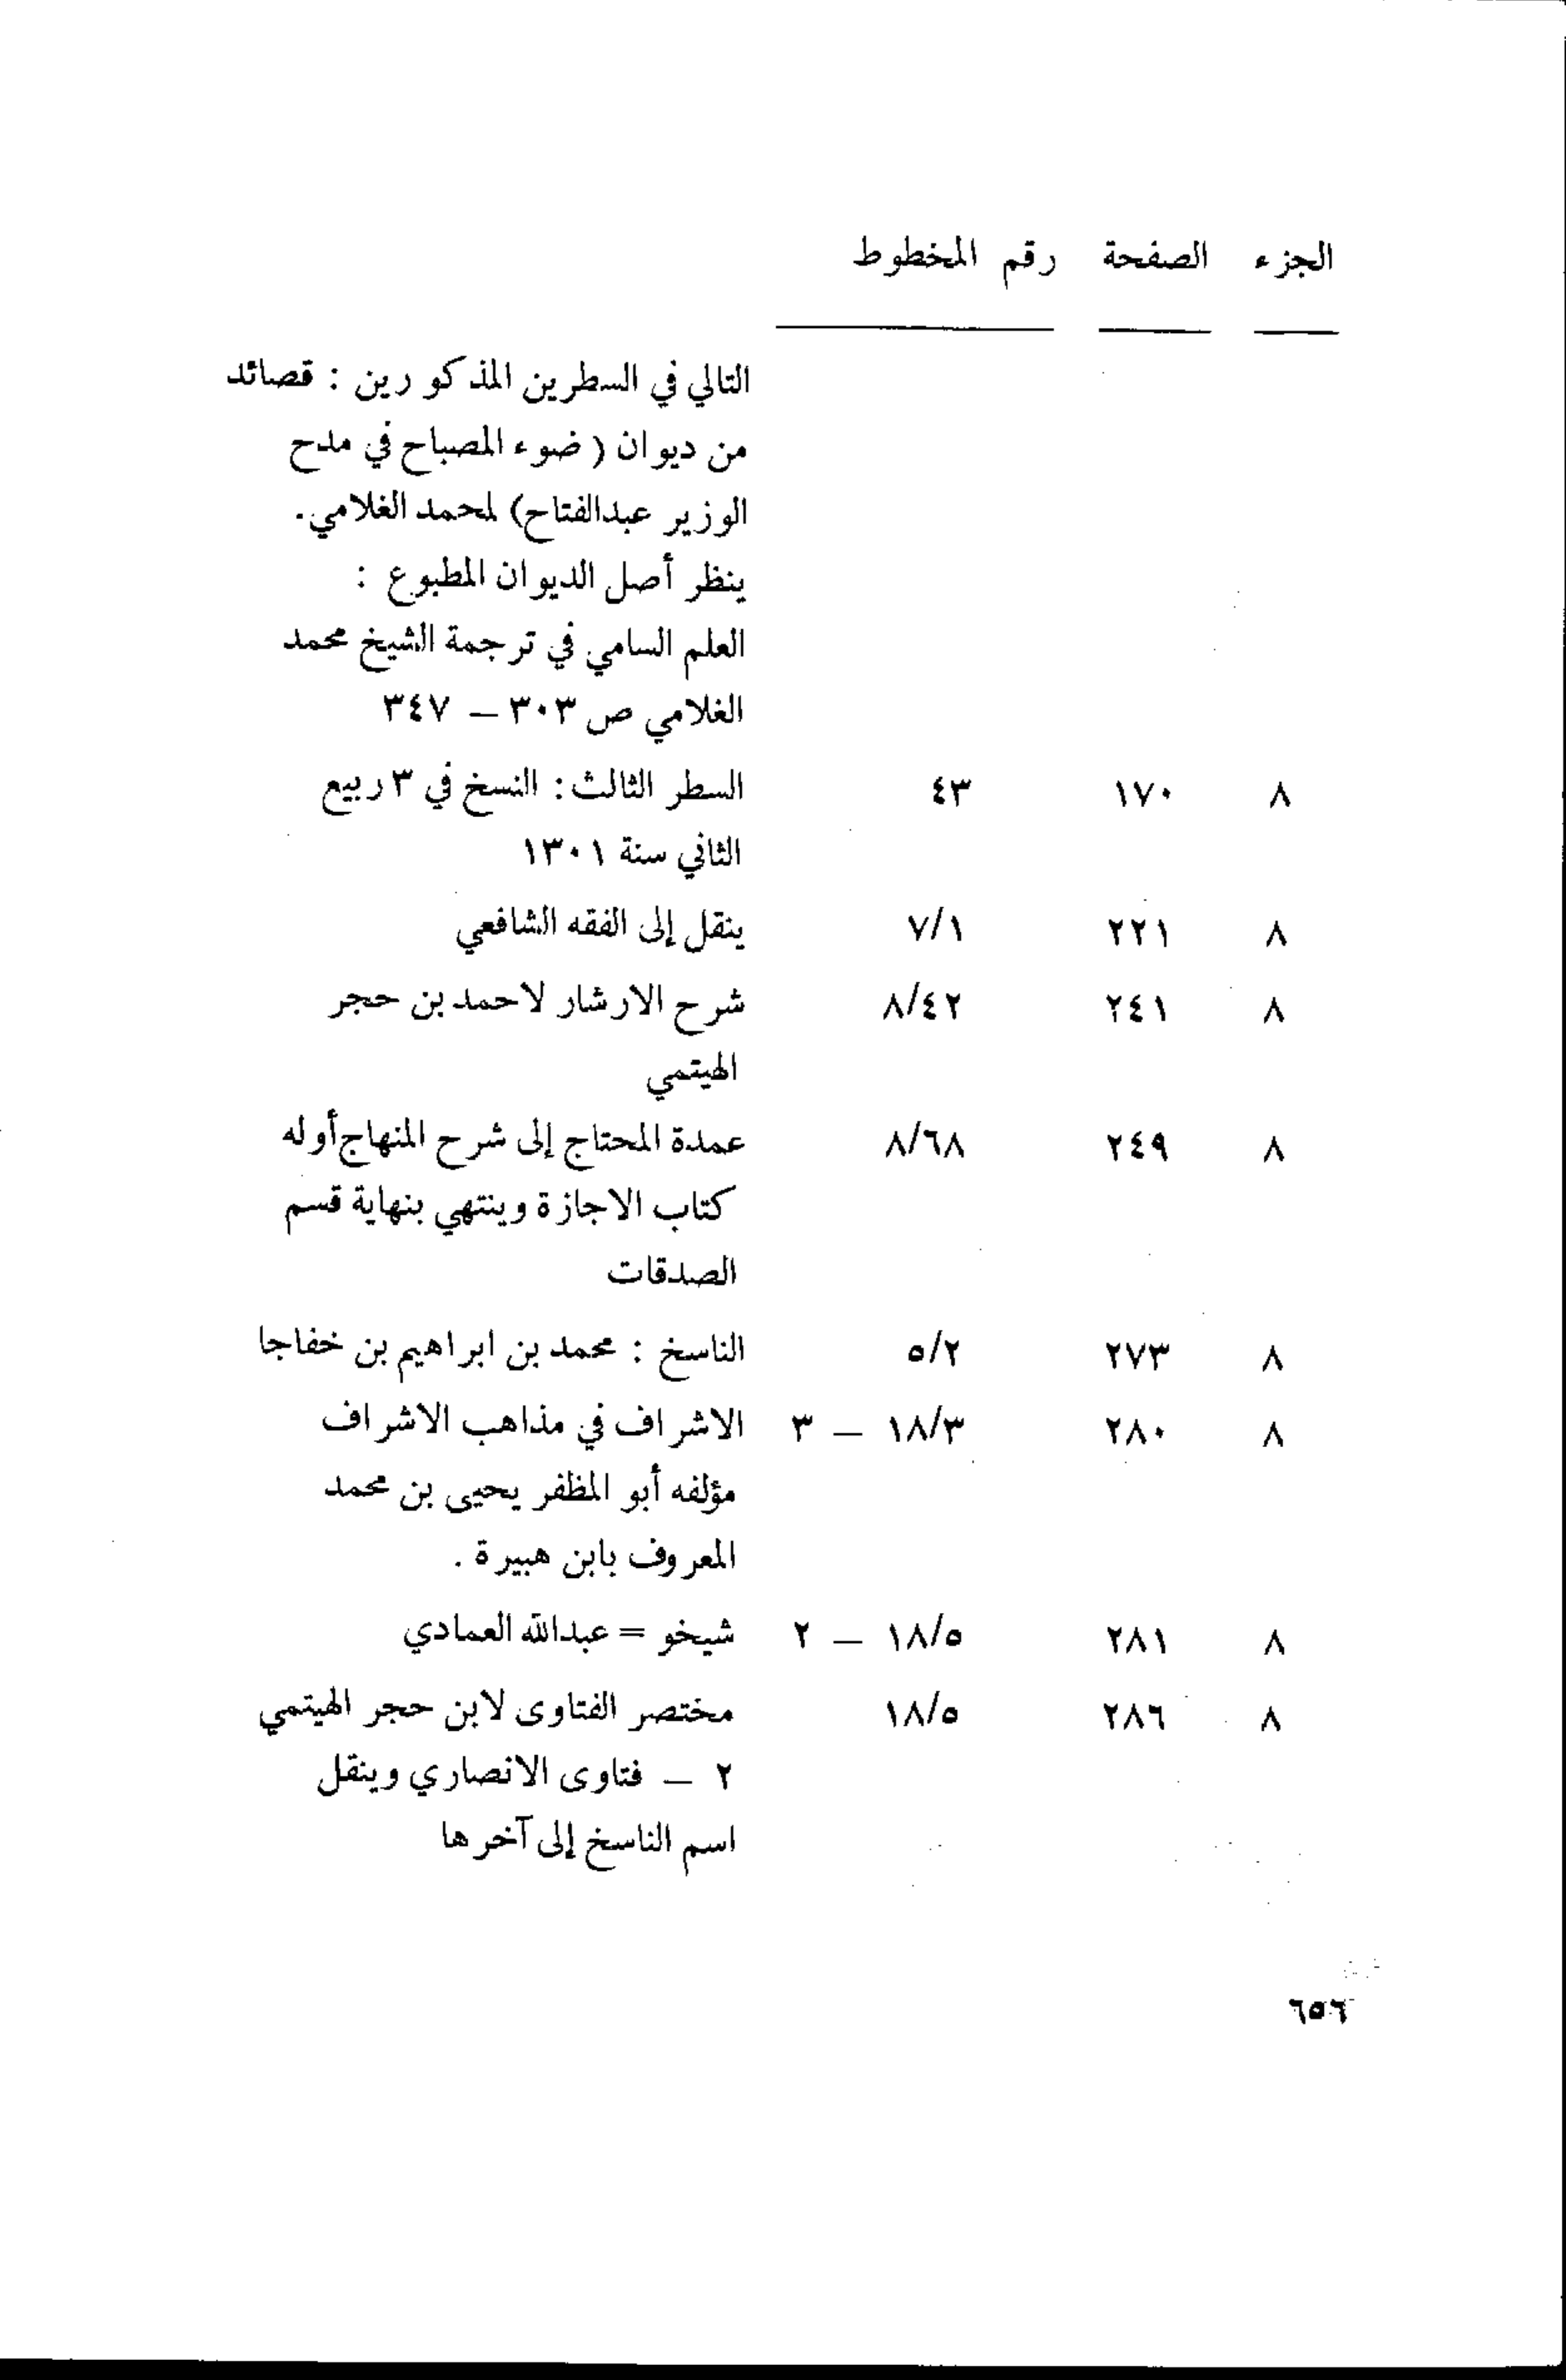 الجزء الصفحة رقم المخطوط
التالي في السطرين المذكورين : قصائد
من ديوان ( ضوء المصباح في مدح
الوزير عبدالفتاح) لمحمد الغلامي.
ينظر أصل الديوان المطبوع :
العلم السامي في ترجمة الشيخ محمد
الغلامي ص ٣٠٣ – ٣٤٧
٨ ١٧٠ ٤٣ السطر الثالث : النسخ في ٣ ربيع
الثاني سنة ١٣٠١
٨ ٢٢١ ٧/١ ينقل إلى الفقه الشافعي
٨ ٢٤١ ٨/٤٢ شرح الارشار لاحمد بن حجر
الهيتمي
٨ ٢٤٩ ٨/٦٨ عمدة المحتاج إلى شرح المنهاج أوله
كتاب الاجازة وينتهي بنهاية قسم
الصدقات
٨ ٢٧٣ ٥/٢ الناسخ : محمد بن ابراهيم بن خفاجا
٨ ٢٨٠ ١٨/٣ – ٣ الاشراف في مذاهب الاشراف
مؤلفه أبو المظفر يحيى بن محمد
المعروف بابن هبيرة .
٨ ٢٨١ ١٨/٥ – ٢ شيخو = عبدالله العمادي
٨ ٢٨٦ ١٨/٥ مختصر الفتاوى لابن حجر الهيتمي
٢ – فتاوى الانصاري وينقل
اسم الناسخ إلى آخرها
٦٥٦